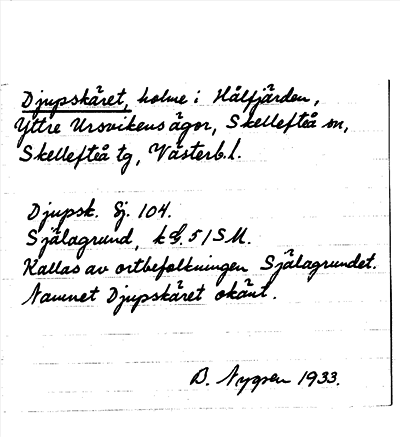 Djupskäret, holme i Hålfjärden,
Yttre Ursvikens ägor, Skellefteå sn,
Skellefteå tg, Västerb. l.
Djupsk. Sj. 104.
Själagrund, kbl. 51 SM.
Kallas av ortbefolkningen Själagrundet.
Namnet Djupskäret okänt.
B. Nygren 1933.